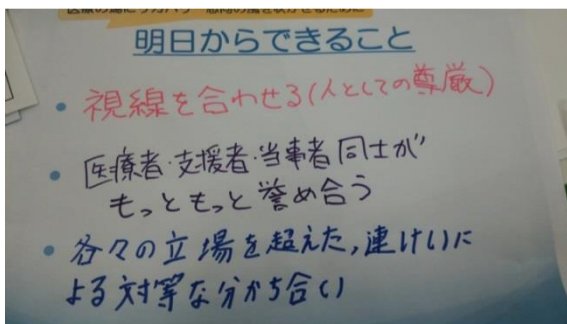 明日からできること
・視線を合わせる(人としての尊厳)
・医療者・支援者・当事者同士が
もっともっと誉め合う
・各々の立場を超えた,連けいに
よる対等な分かち合い